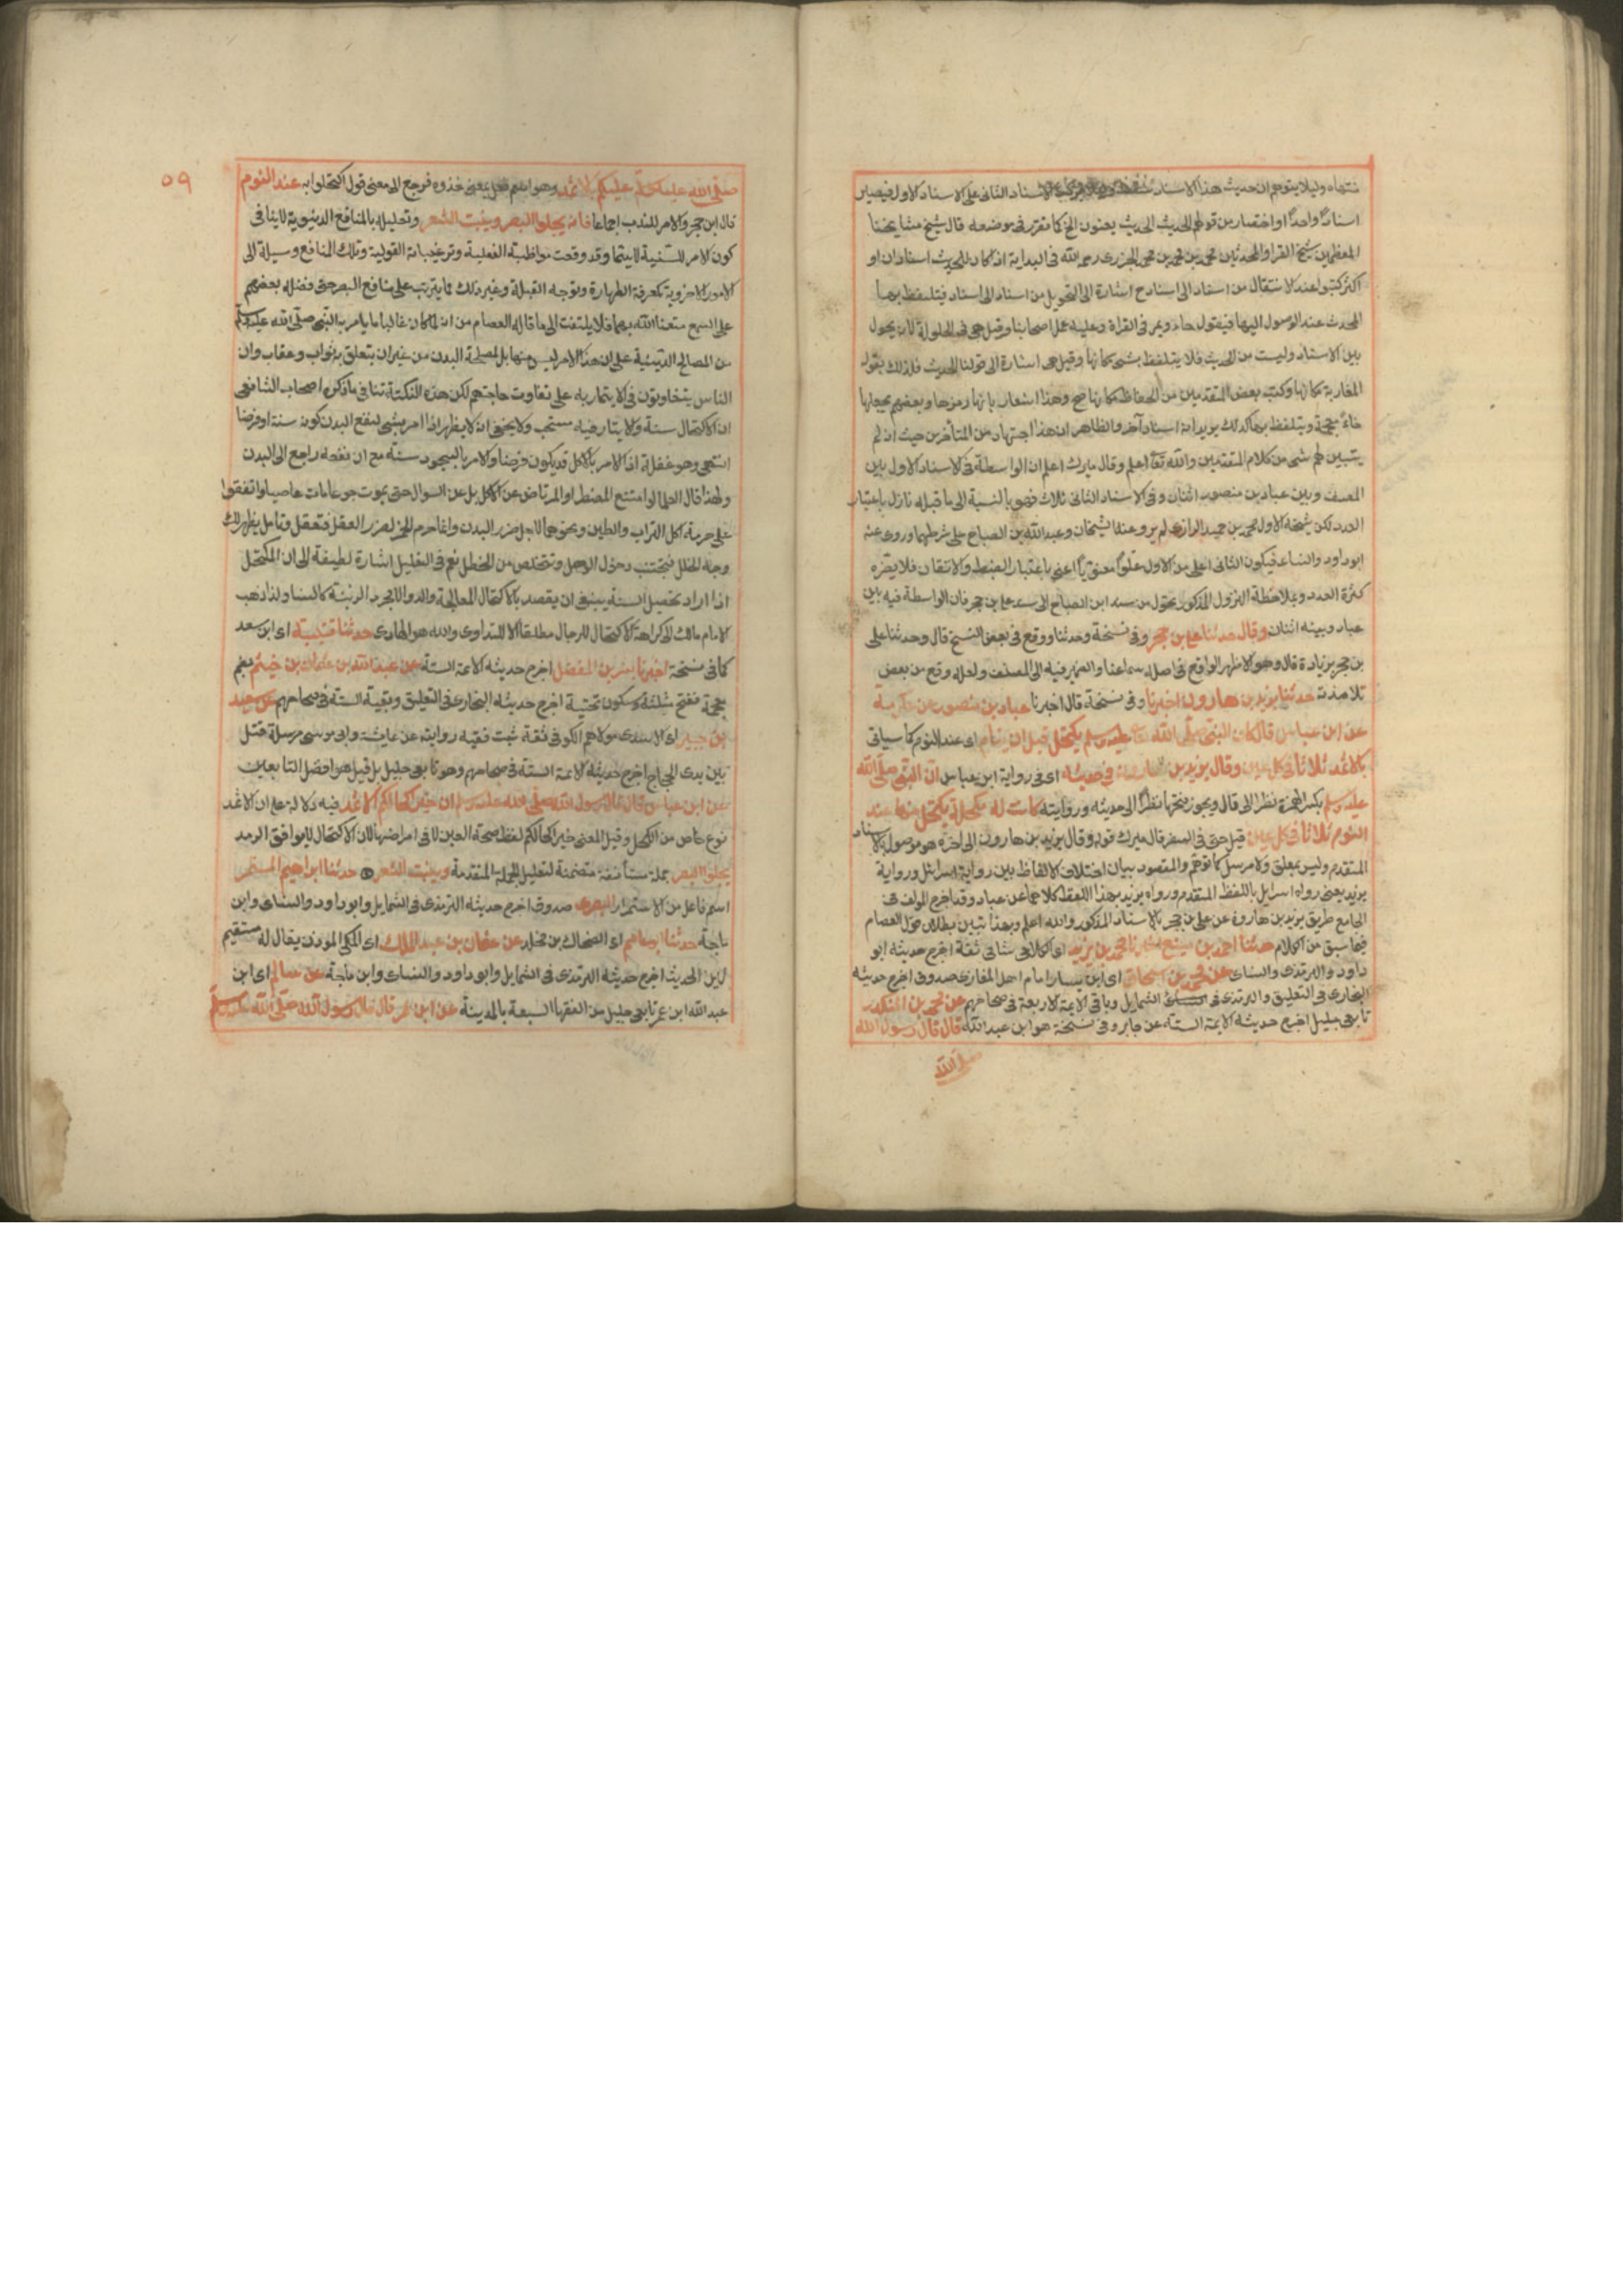 منتهاه وليلا يتوهم ان حديث هذا الاسناد الاسناد الثانى على الاسناد الاول فيصير
اسنادًا واحدًا او اختصار من قولهم الحديث الحديث يعنون الخ كما تقرر فى موضعه قال شيخ مشايخنا
المعظمين شيخ القرا والمحدثين محمد بن محمد بن محمد الجزرى رحمه الله فى البداية اذا كان للحديث اسنادان او
اكثر كتبوا عند الانتقال من اسناد الى اسناد ح اشارة الى التحويل من اسناد الى اسناد فيتلفظ بها
المحدث عند الوصول اليها فيقول حاء ويمر فى القراة وعليه عمل اصحابنا وقيل هى فى الحلولة لانه يحول
بين الاسناد وليست من الحديث فلا يتلفظ بشى مكانها وقيل هى اشارة الى قولنا الحديث فلذلك يقول
المغاربة مكانها وكتب بعض المتقدمين من الحفاظ مكانها صح وهذا اشعار بانها رمزها وبعضهم يجعلها
خاءً معجمة ويتلفظ بها كذلك يريد انه اسناد آخر والظاهر ان هذا اجتهاد من المتأخرين حيث ان لم
يتبين لهم شى من كلام المتقدمين والله تعالى اعلم وقال ميرك اعلم ان الواسطة فى الاسناد الاول بين
المصنف وبين عباد بن منصور اثنان وفى الاسناد الثانى ثلاث فهو بالنسبة الى ما قبله نازل باعتبار
العدد لكن شيخه الاول محمد بن حميد الرازى لم يرو عنه الشيخان وعبد الله بن الصباح على شرطهما وروى عنه
ابو داود والنساءى فيكون الثانى اعلى من الاول علوًا معنويًا اعنى باعتبار الضبط والاتقان فلا يضره
كثرة العدد وبملاحظة النزول المذكور تحول من سند ابن الصباح الى سند على بن حجر فان الواسطة فيه بين
عباد وبينه اثنان وقال حدثنا على بن حجر وفى نسخة وحدثنا ووقع فى بعض النسخ قال وحدثنا على
بن حجر بزيادة قال وهو الاظهر الواقع فى اصل سماعنا والضمير فيه الى المصنف ولعله وقع من بعض
تلامذته حدثنا يزيد بن هارون اخبرنا وفى نسخة قال اخبرنا عباد بن منصور عن عكرمة
عن ابن عباس قال كان النبى صلى الله عليه وسلم يكتحل قبل ان ينام اى عند النوم كما سياتى
بالاثمد ثلاثا فى كل عين وقال يزيد بن هارون فى حديثه اى فى رواية ابن عباس ان النبى صلى الله
عليه وسلم بكسر الهمزة نظرا الى قال ويجوز فتحها نظرًا الى حديثه وروايته كانت له مكحلة يكتحل منها عند
النوم ثلاثا فى كل عين قيل حتى فى السفر قال ميرك قوله وقال يزيد بن هارون الى اخره هو موصول بالاسناد
المتقدم وليس بمعلق ولا مرسل كما توهم والمقصود بيان اختلاف الالفاظ بين رواية اسرائيل ورواية
يزيد يعنى رواه اسرايل باللفظ المتقدم ورواه يزيد بهذا اللفظ كلاهما عن عباد وقد اخرج المولف فى
الجامع طريق يزيد بن هارون عن على بن حجر بالاسناد المذكور والله اعلم وبهذا يتبين بطلان قول العصام
فيما سبق من الكلام حدثنا احمد بن منيع اخبرنا محمد بن يزيد اى الكلاعى شامى ثقة اخرج حديثه ابو
داود والترمذى والنساى عن محمد بن اسحاق اى ابن يسار امام اهل المغازى صدوق اخرج حديثه
البخارى فى التعليق والترمذى فى الشمايل وباقى الايمة الاربعة فى صحاحهم عن محمد بن المنكدر
تابعى جليل اخرج حديثه الايمة الستة عن جابر وفى نسخة هو ابن عبد الله قال قال رسول الله
صلى الله
٥٩
صلى الله عليه وسلم عليكم بالاثمد وهو اسم فعل بمعنى خذوه فرجع الى معنى قول اكتحلوا به عند النوم
قال ابن حجر والامر للندب اجماعا فانه يجلوا البصر وينبت الشعر وتعليله بالمنافع الدنيوية لا ينافى
كون الامر للسنية لا سيما وقد وقعت مواظبته الفعلية وترغيباته القولية وتلك المنافع وسيلة الى
الامور الاخروية كمعرفة الطهارة وتوجه القبلة وغير ذلك مما يترتب على منافع البصر حتى فضله بعضهم
على السمع متعنا الله بهما فلا يلتفت الى ما قاله العصام من انه لما كان غالبا ما يامر به النبى صلى الله عليه وسلم
من المصالح الدينية على ان هذا الامر ليس منها بل لمصلحة البدن من غير ان يتعلق به ثواب وعقاب وان
الناس يتفاوتون فى الايتمار به على تفاوت حاجتهم لكن هذه النكتة تنافى ما ذكره اصحاب الشافعى
ان الاكتحال سنة والايتار فيه مستحب ولا يخفى انه لا يظهر اذا امر بشى لنفع البدن كونه سنة او فرضا
انتهى وهو غفلة اذ الامر بالاكل قد يكون فرضا والامر بالسحور سنة مع ان نفعه راجع الى البدن
ولهذا قال العلما لو امتنع المضطر او المرتاض عن الاكل بل عن السوال حتى يموت جوعا مات عاصيا واتفقوا
على حرمة اكل التراب والطين ونحوهما لاجل ضرر البدن وانما حرم الخمر لضرر العقل فتعقل وتامل يظهر لك
وجه الخلل فتجتنب دخول الوحل وتتخلص من الخطل نعم فى التعليل اشارة لطيفة الى ان المكتحل
اذا اراد تحصيل السنة ينبغى ان يقصد بالاكتحال المعالجة والدوا لا مجرد الزينة كالنسا ولذا ذهب
الامام مالك الى كراهة الاكتحال للرجال مطلقا الا للتداوى والله هو الهادى حدثنا قتيبة اى ابن سعد
كما فى نسخة اخبرنا بشر بن المفضل اخرج حديثه الايمة الستة عن عبد الله بن عثمان بن خيثم بضم
معجمة ففتح مثلثة وسكون تحتية اخرج حديثه البخارى فى التعليق وبقية الستة فى صحاحهم عن سعيد
بن جبير اى الاسدى مولاهم الكوفى ثقة ثبت فقيه روايته عن عايشة وابى موسى مرسلة قتل
بين يدى الحجاج اخرج حديثه الايمة الستة فى صحاحهم وهو تابعى جليل بل قيل هو افضل التابعين
عن ابن عباس قال قال رسول الله صلى الله عليه وسلم ان خير اكحالكم الاثمد فيه دلالة على ان الاثمد
نوع خاص من الكحل وقيل المعنى خير اكحالكم لحفظ صحة العين لا فى امراضها لان الاكتحال لا يوافق الرمد
يجلوا البصر جملة مستأنفة متضمنة لتعليل الجملة المتقدمة وينبت الشعر حدثنا ابراهيم المستمر
اسم فاعل من الاستمرار البصرى صدوق اخرج حديثه الترمذى فى الشمايل وابو داود والنساى وابن
ماجة حدثنا ابو عاصم اى الضحاك بن مخلد عن عثمان بن عبد الملك اى المكى الموذن يقال له مستقيم
لين الحديث اخرج حديثه الترمذى فى الشمايل وابو داود والنساى وابن ماجة عن سالم اى ابن
عبد الله ابن عمر تابعى جليل من الفقها السبعة بالمدينة عن ابن عمر قال قال رسول الله صلى الله عليه وسلم